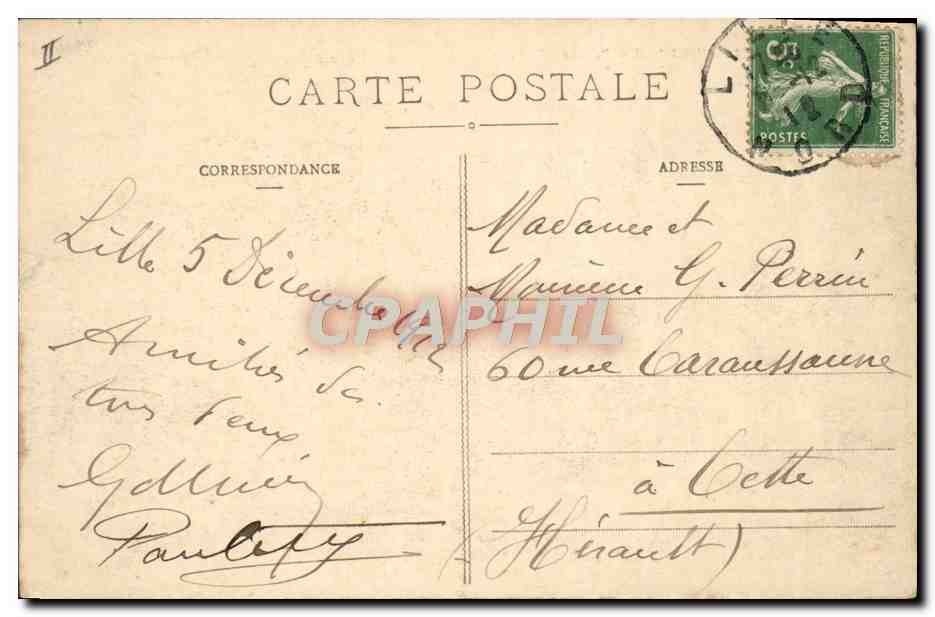 II
CARTE POSTALE
CORRESPONDANCE
Lille 5 Décembre 1912
Amitiés de
tous deux
ADRESSE
Madame et
Monsieur G. Perrin
60 rue Caraussanne
à Cette
(Hérault)
5c
POSTES
REPUBLIQUE FRANÇAISE
LILLE
NORD
CPAPHIL